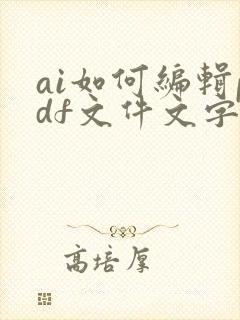 ai如何编辑p
df文件文字
高培厚